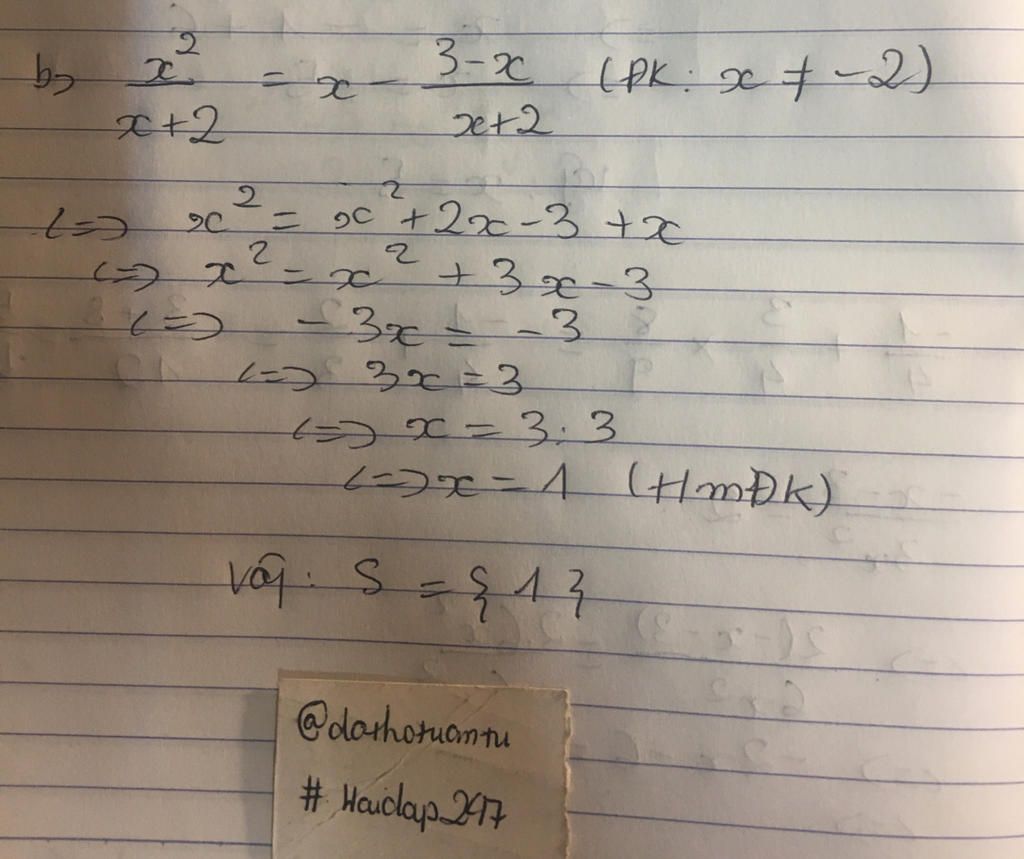 b) x²/(x+2) = x - (3-x)/(x+2) (ĐK: x ≠ -2)
<=> x² = x² + 2x - 3 + x
<=> x² = x² + 3x - 3
<=> - 3x = - 3
<=> 3x = 3
<=> x = 3 : 3
<=> x = 1 (tmĐK)
Vậy : S = { 1 }
@dothotuantu
# Hoidap247